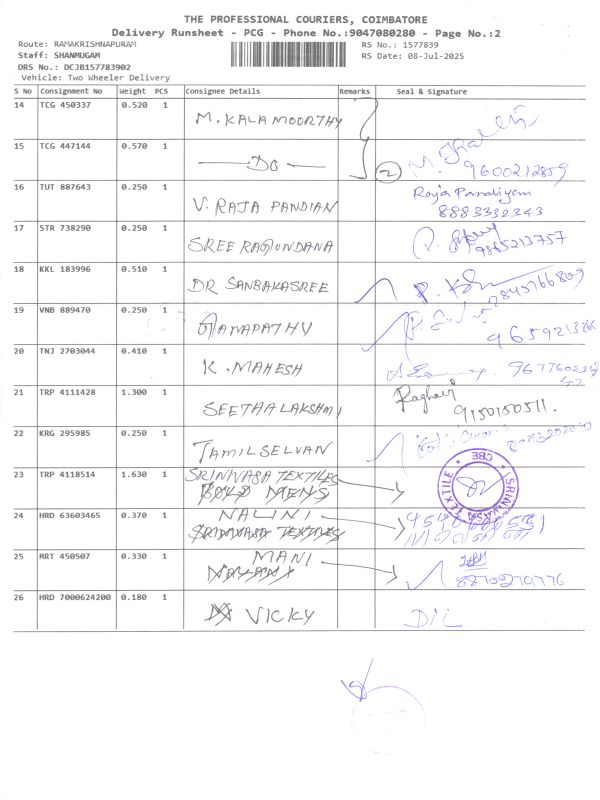 THE PROFESSIONAL COURIERS, COIMBATORE
Delivery Runsheet - PCG - Phone No.:9047080280 - Page No.:2
Route: RAMAKRISHNAPURAM
RS No.: 1577839
Staff: SHANMUGAM
RS Date: 08-Jul-2025
DRS No.: DCJB157783902
Vehicle: Two Wheeler Delivery
S No Consignment No Weight PCS Consignee Details Remarks Seal & Signature
14 TCG 450337 0.520 1 M. KALAMOORTHY
15 TCG 447144 0.570 1 DO 2 9600212859
16 TUT 887643 0.250 1 V. RAJA PANDIAN Raja Pandiyan
8883332343
17 STR 738290 0.250 1 SREE RAGUNDANA 9865213757
18 KKL 183996 0.510 1 DR SANBAKASREE
19 VNB 889470 0.250 1 GANAPATHY
20 TNJ 2703044 0.410 1 K. MAHESH
21 TRP 4111428 1.300 1 SEETHALAKSHMI Raghavi
9150150511.
22 KRG 295985 0.250 1 TAMILSELVAN
23 TRP 4118514 1.630 1 SRINIVASA TEXTILES SRINIVASA TEXTILE CBE
BOLD MENS
24 HRD 63603465 0.370 1 NALINI
SRINIVASA TEXTILES
25 MRT 450507 0.330 1 MANI
8870270776
26 HRD 7000624200 0.180 1 VICKY D/L